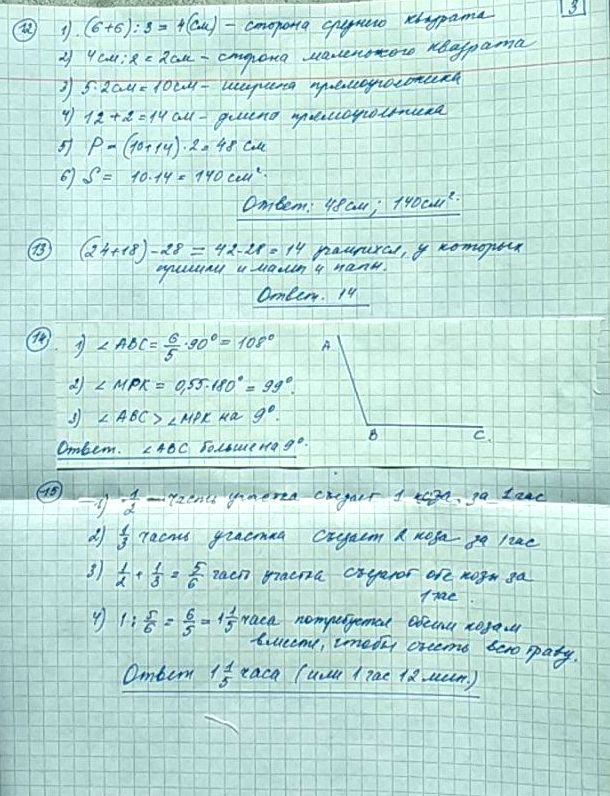 3
12 1) (6+6) : 3 = 4 (см) – сторона среднего квадрата
2) 4 см : 2 = 2 см – сторона маленького квадрата
3) 5 · 2 см = 10 см – ширина прямоугольника
4) 12 + 2 = 14 см – длина прямоугольника
5) P = (10+14) · 2 = 48 см
6) S = 10 · 14 = 140 см²
Ответ: 48 см ; 140 см².
13 (24+18) – 28 = 42 – 28 = 14 учащихся, у которых
пришли и мамы и папы.
Ответ. 14
14. 1) ∠ABC = 6/5 · 90° = 108°
2) ∠MPK = 0,55 · 180° = 99°.
3) ∠ABC > ∠MPK на 9°.
Ответ. ∠ABC больше на 9°.
A
B C.
15 1) 1/2 – часть участка съедает 1 коза за 1 час
2) 1/3 часть участка съедает 2 коза за 1 час
3) 1/2 + 1/3 = 5/6 часть участка съедают обе козы за
1 час.
4) 1 : 5/6 = 6/5 = 1 1/5 часа потребуется обеим козам
вместе, чтобы съесть всю траву.
Ответ 1 1/5 часа (или 1 час 12 мин.)